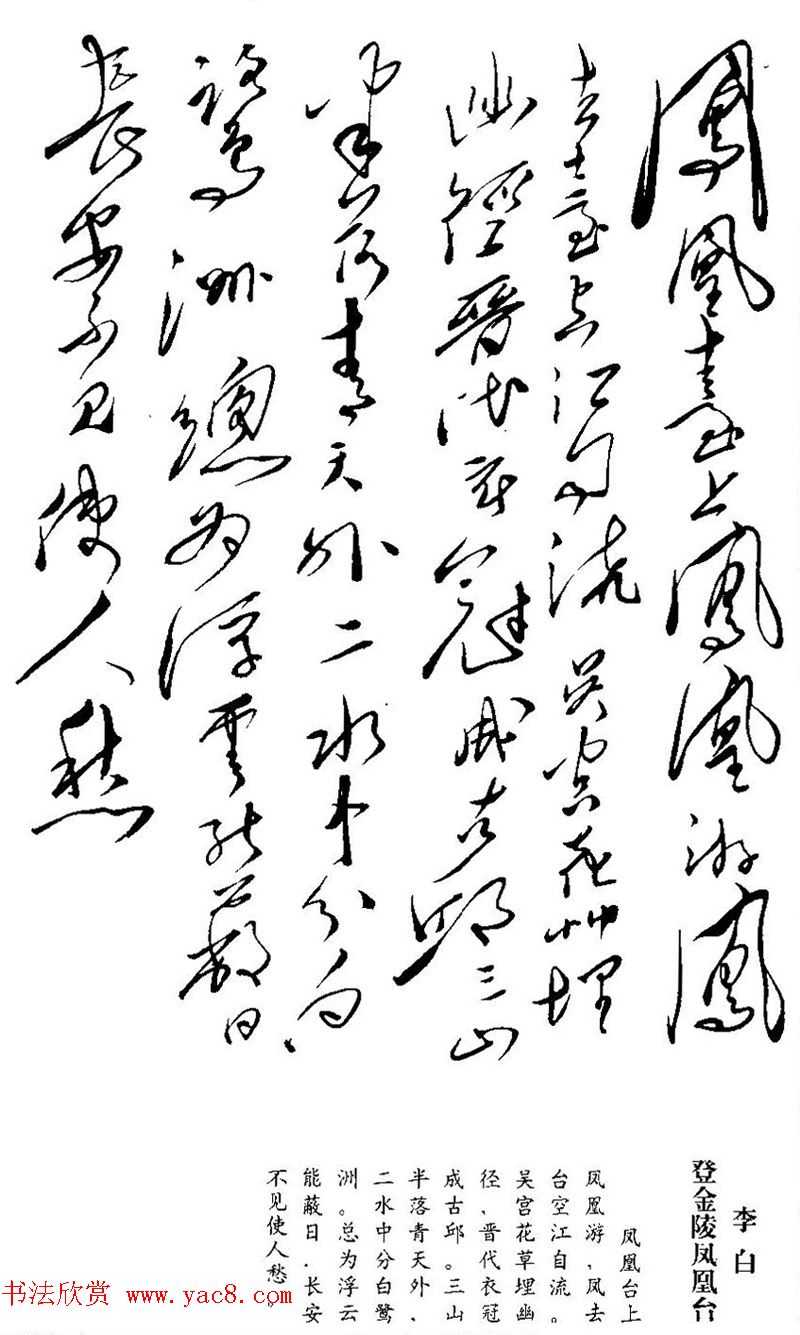 鳳凰臺上鳳凰游鳳
去臺空江自流吴宫花艸埋
幽徑晉代衣冠成古邱三山
半落青天外二水中分白
鷺洲總為浮雲能蔽日
長安不見使人愁
李白
登金陵凤凰台
凤凰台上
凤凰游，凤去
台空江自流。
吴宫花草埋幽
径，晋代衣冠
成古邱。三山
半落青天外，
二水中分白鹭
洲。总为浮云
能蔽日，长安
不见使人愁。
书法欣赏 www.yac8.com